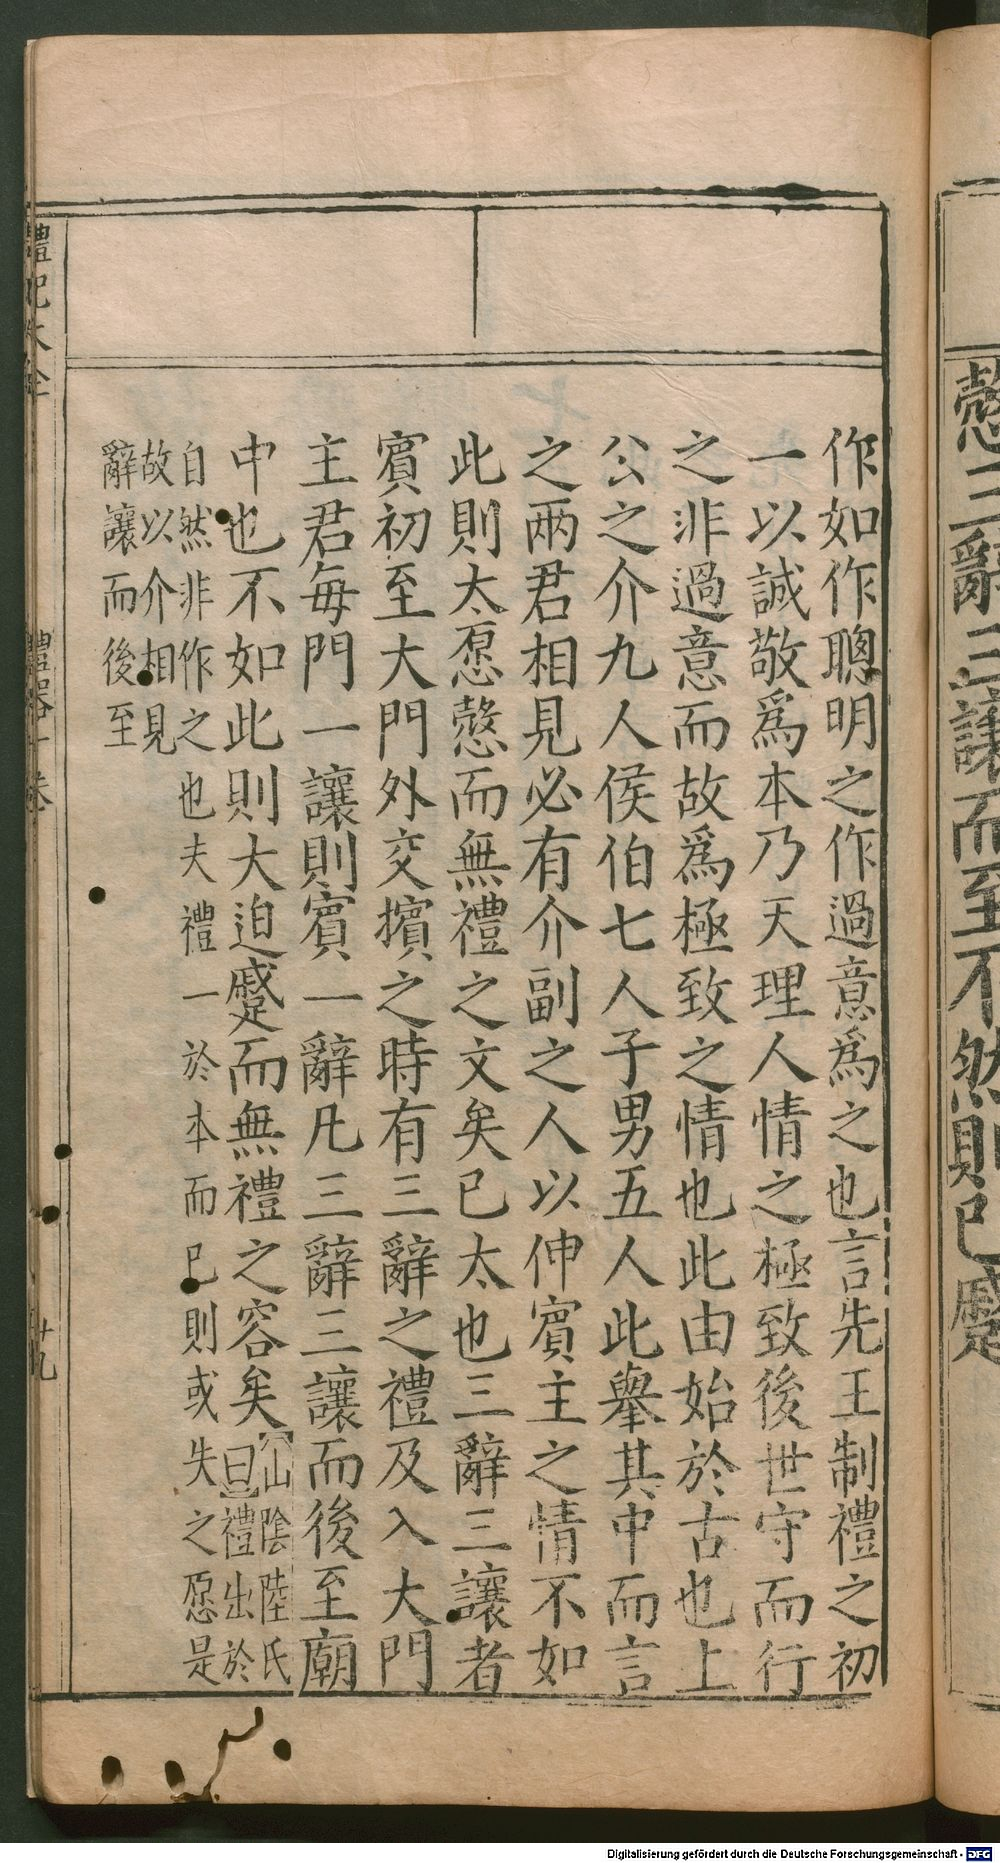 慤三辭三讓而至不然則已蹙
作如作聰明之作過意爲之也言先王制禮之初
一以誠敬爲本乃天理人情之極致後世守而行
之非過意而故爲極致之情也此由始於古也上
公之介九人侯伯七人子男五人此舉其中而言
之兩君相見必有介副之人以伸賓主之情不如
此則太愿慤而無禮之文矣已太也三辭三讓者
賓初至大門外交擯之時有三辭之禮及入大門
主君每門一讓則賓一辭凡三辭三讓而後至廟
中也不如此則大迫蹙而無禮之容矣
山陰陸氏
曰禮出於
自然非作之也夫禮一於本而已則或失之愿是
故以介相見
辭讓而後至
禮記大全
禮器十卷
十九
Digitalisierung gefördert durch die Deutsche Forschungsgemeinschaft - DFG